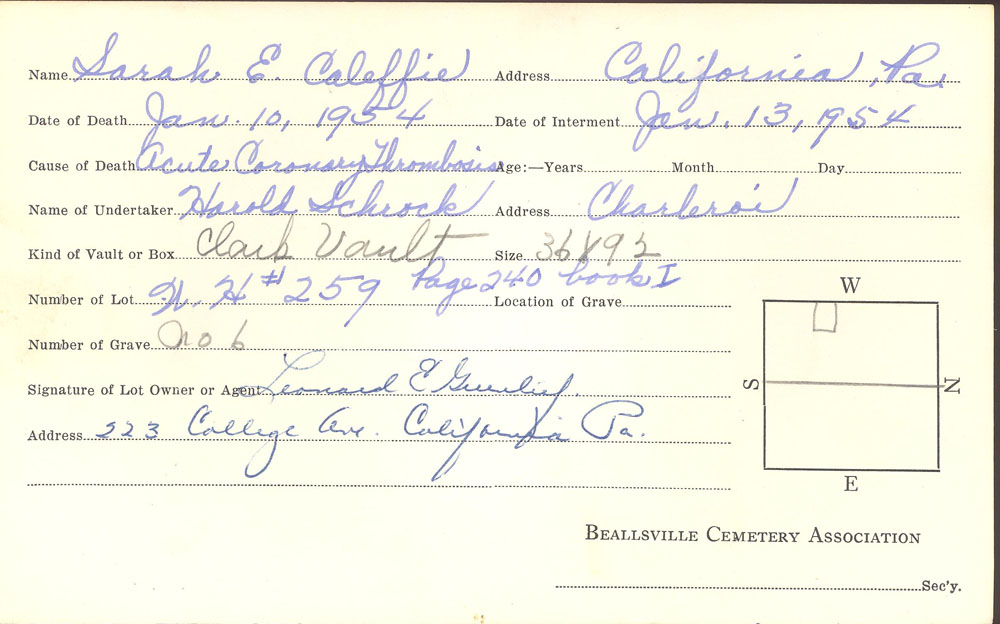 Name Sarah E. Caleffie Address California, Pa.
Date of Death Jan. 10, 1954 Date of Interment Jan. 13, 1954
Cause of Death Acute Coronary Thrombosis Age:—Years Month Day
Name of Undertaker Harold Schrock Address Charleroi
Kind of Vault or Box Clark Vault Size 36X92
Number of Lot N. H #259 Page 240 book I Location of Grave
Number of Grave no 6
Signature of Lot Owner or Agent Leonard E
Address 223 College Ave. California Pa.
W
S
N
E
BEALLSVILLE CEMETERY ASSOCIATION
Sec'y.